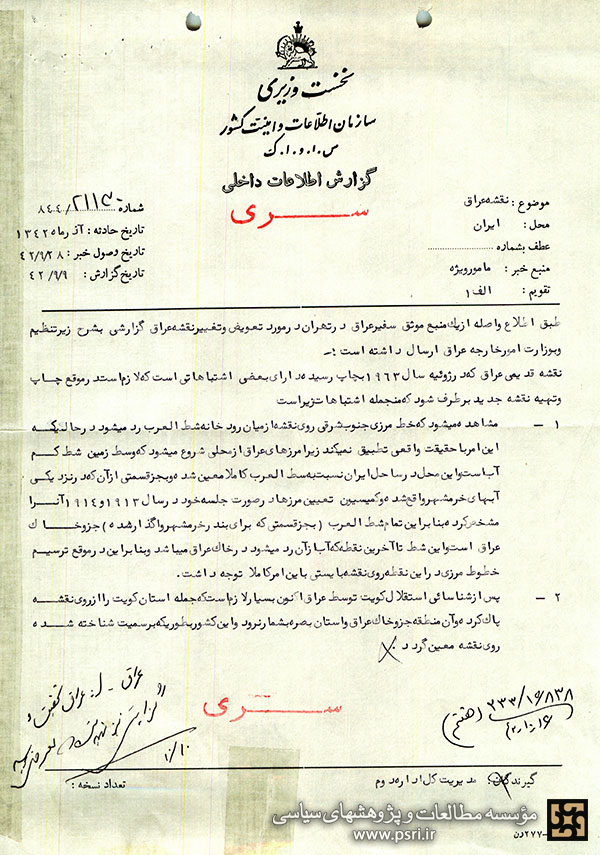 نخست وزیری
سازمان اطلاعات و امنیت کشور
س.ا.و.ا.ک
گزارش اطلاعات داخلی
سری
موضوع : نقشه عراق
محل : ایران
عطف بشماره
منبع خبر : مامور ویژه
تقویم : الف ۱
شماره ۸۴۴/۲۱۱۳۰
تاریخ حادثه : آذرماه ۱۳۴۲
تاریخ وصول خبر : ۴۲/۹/۲۸
تاریخ گزارش : ۴۲/۹/۹
طبق اطلاع واصله از یک منبع موثق سفیر عراق در تهران در مورد تعویض و تغییر نقشه عراق گزارشی بشرح زیر تنظیم
و بوزارت امور خارجه عراق ارسال داشته است :ـ
نقشه قدیمی عراق که در ژوئیه سال ۱۹۶۳ بچاپ رسیده دارای بعضی اشتباهاتی است که لازم است در موقع چاپ
و تهیه نقشه جدید برطرف شود که منجمله اشتباهات زیر است
۱ – مشاهده میشود که خط مرزی جنوب شرقی روی نقشه از میان رودخانه شط العرب رد میشود در حالیکه
این امر با حقیقت واقعی تطبیق نمیکند زیرا مرزهای عراق از محلی شروع میشود که وسط زمین شط کم
آب است و این محل در ساحل ایران نسبت به سط العرب کاملا معین شده و بجز قسمتی از آن که در نزدیکی
آبهای خرمشهر واقع شده و کمیسیون تعیین مرزها در صورت جلسه خود در سال ۱۹۱۳ و ۱۹۱۴ آنرا
مشخص کرده بنا براین تمام شط العرب (بجز قسمتی که برای بندر خرمشهر واگذار شده) جزو خاک
عراق است و این شط تا آخرین نقطه که آب از آن رد میشود در خاک عراق میباشد و بنا براین در موقع ترسیم
خطوط مرزی در این نقطه روی نقشه بایستی با این امر کاملا توجه داشت.
۲ – پس از شناسائی استقلال کویت توسط عراق اکنون بسیار لازم است که جمله استان کویت را از روی نقشه
پاک کرده و آن منطقه جزو خاک عراق و استان بصره بشمار نرود و این کشور بطوریکه برسمیت شناخته شده
روی نقشه معین گردد
سری
۳۳۳/۱۶۸۳۸
(هفتم)
عراق
۱۰/۱۰
گیرندگان: مدیریت کل اداره دوم
تعداد نسخه :
مؤسسه مطالعات و پژوهشهای سیاسی
www.psri.ir